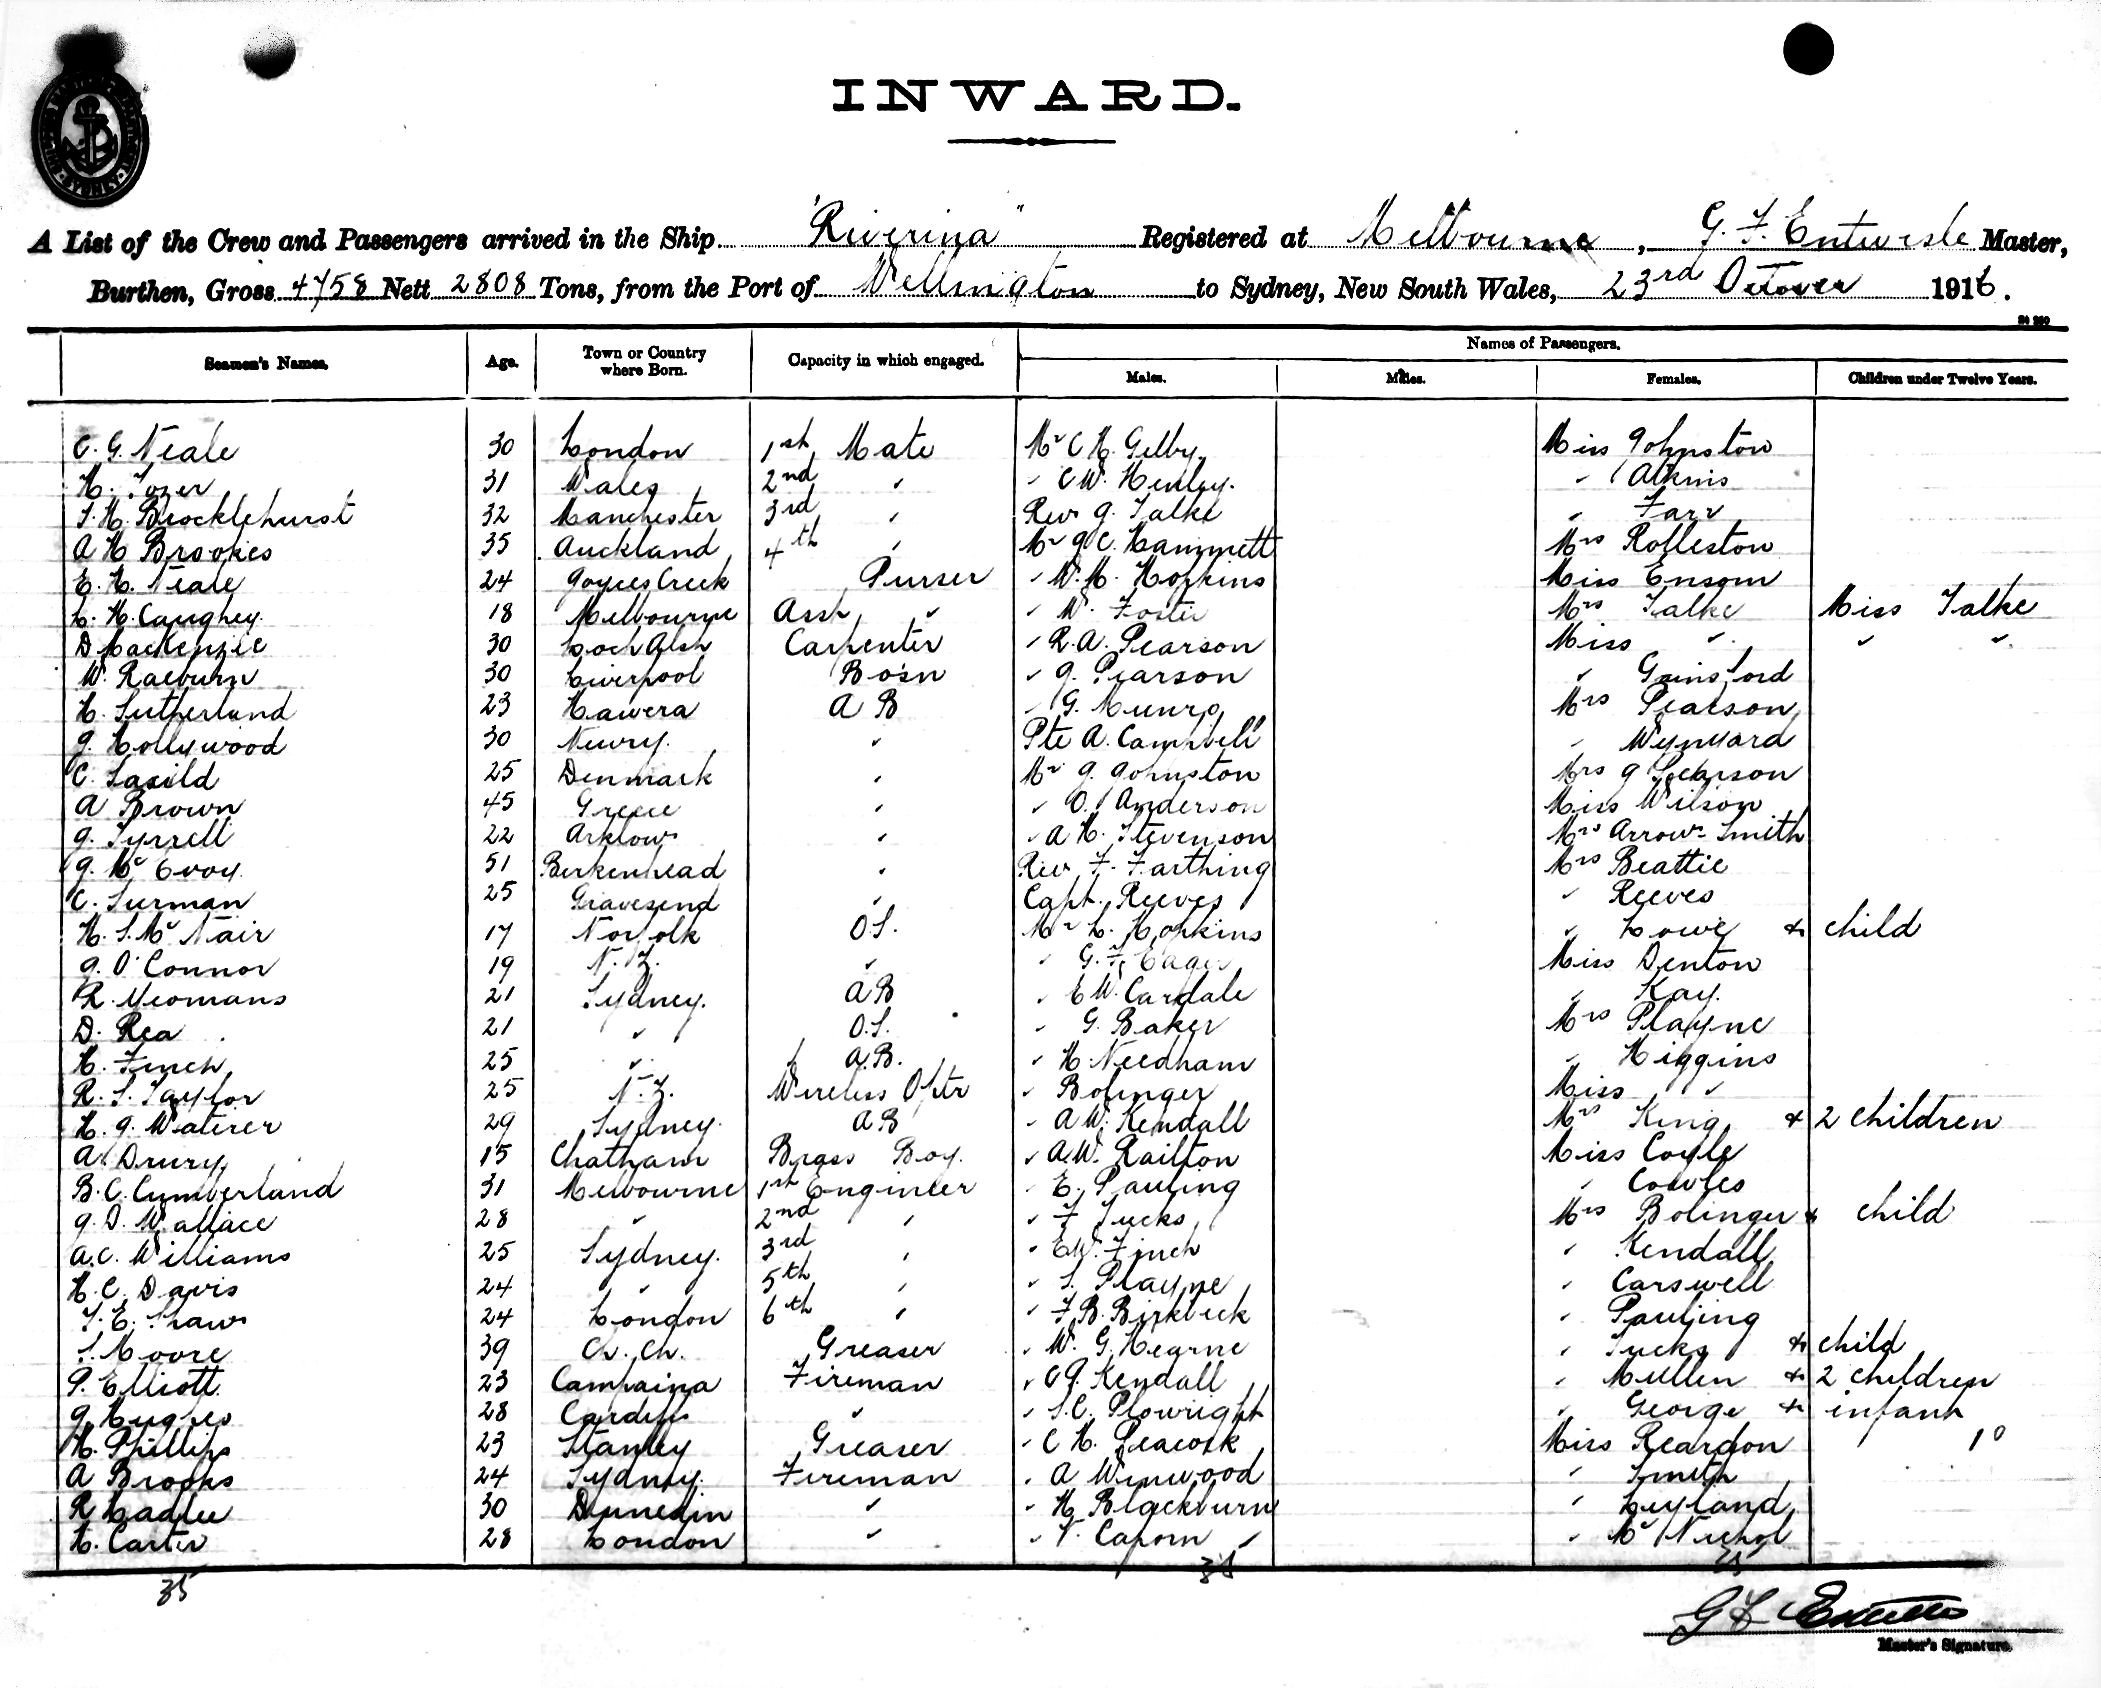 INWARD.
A List of the Crew and Passengers arrived in the Ship "Riverina" Registered at Melbourne, G. F. Entwisle Master,
Burthen, Gross 4758 Nett 2808 Tons, from the Port of Wellington to Sydney, New South Wales, 23rd October 1916.
Seamen's Names. Age. Town or Country where Born. Capacity in which engaged. Names of Passengers.
Males. Males. Females. Children under Twelve Years.
C. G. Neale 30 London 1st Mate Mr C H. Gelby Miss Johnston
H. Tozer 31 Wales 2nd " " C W. Henley. " Atkins
F. H. Brocklehurst 32 Manchester 3rd " Rev J. Talke " Farr
A H Brookes 35 Auckland 4th " Mr J C. Hammett Mrs Rolleston
E. H. Neale 24 Joyces Creek Purser " W. H. Hopkins Miss Ensom
L. H. Caughey. 18 Melbourne Asst " " W. Foster Mrs Talke Miss Talke
D MacKenzie 30 Loch Alsh Carpenter " R. A. Pearson Miss " " "
W. Raeburn 30 Liverpool Bosn " J. Pearson " Gainsford
H. Sutherland 23 Hawera A B " G. Munro Mrs Pearson
J. Hollywood 30 Newry. " Pte A. Campbell " Wynyard
C. 25 Denmark " Mr J. Johnston Mrs J Pearson
A Brown 45 Greece " " O. Anderson Miss Wilson
J. Tyrrell 22 Arklow " " A H. Stevenson Mrs Arrow-Smith
J. McEvoy. 51 Birkenhead " Rev F. Farthing Mrs Beattie
C. Surman 25 Gravesend " Capt. Reeves " Reeves
H. S. McNair 17 Norfolk O.S. Mr L. Hopkins " Lowe & child
J. O'Connor 19 N. Z. " " G. F. Eager Miss Denton
R. Yeomans 21 Sydney. A B " E W. Cardale " Kay.
D. Rea 21 " O.S. " G. Baker Mrs Playne
H. Finch 25 " A.B. " H Needham " Higgins
R. S. Taylor 25 N. Z. Wireless Optr " Bolinger Miss "
H. J. Waterer 29 Sydney. A B " A W. Kendall Mrs King & 2 children
A Drury 15 Chatham Brass Boy. " A. W. Railton Miss Coyle
B. C. Cumberland 31 Melbourne 1st Engineer " E. Pauling " Cowles
J. D. Wallace 28 " 2nd " " F Tucks Mrs Bolinger & child
A. C. Williams 25 Sydney. 3rd " " E W. Finch " Kendall
H. C. Davis 24 " 5th " " S. Playne " Carswell
T. E. Shaw 24 London 6th " " F. B. Birkbeck " Pauling
S. Moore 39 Ch. Ch. Greaser " W. G. Hearne " Tucks & child
P. Elliott 23 Campaina Fireman " C J. Kendall " Mullen & 2 children
J. Hughes 28 Cardiff " " S. C. Plowright " George & infant
H. Phillips 23 Stanley Greaser " C H. Peacock Miss Reardon 10
A Brooks 24 Sydney. Fireman " A Winwood " Smith
R Hadlee 30 Dunedin " " H Blackburn " Leyland
H. Carter 28 London " " V. Caporn " McNichol
35 35 35
Master's Signature.